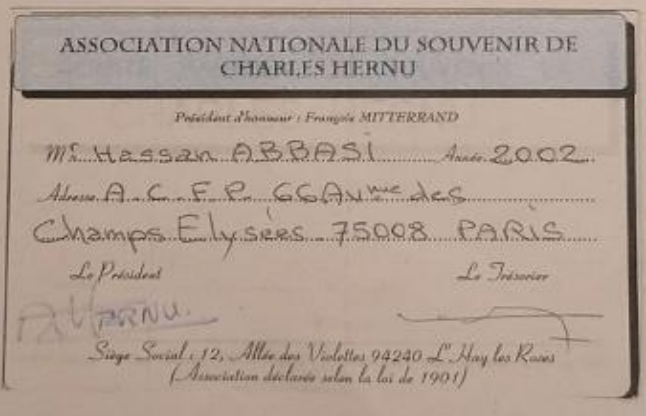 ASSOCIATION NATIONALE DU SOUVENIR DE
CHARLES HERNU
Président d'honneur : François MITTERRAND
Mr Hassan ABBASI Année 2002
Adresse A.C.F.P. 66 Avnue des
Champs Elysées 75008 PARIS
Le Président Le Trésorier
HERNU.
Siège Social : 12, Allée des Violettes 94240 L'Hay les Roses
(Association déclarée selon la loi de 1901)